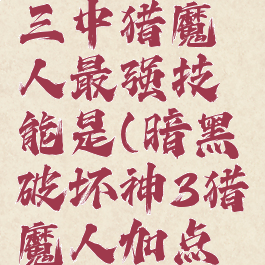 三中猎魔
人最强技
能是(暗黑
破坏神3猎
魔人加点